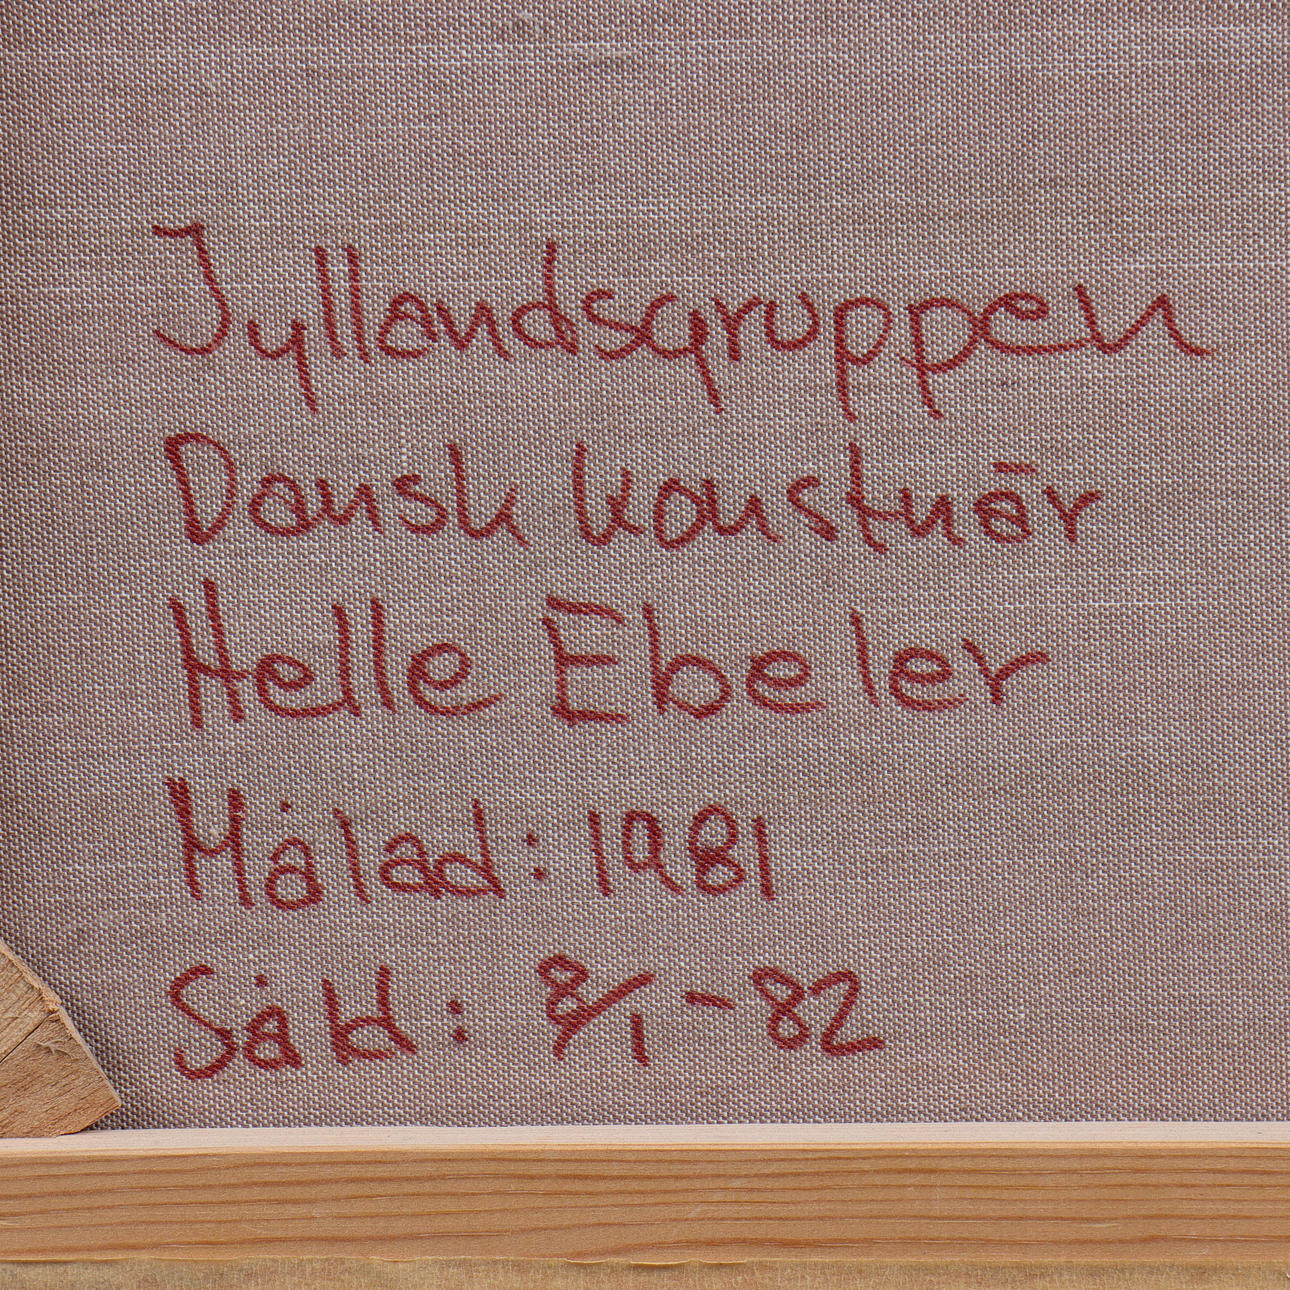 Jyllandsgruppen
Dansk konstnär
Helle Ebeler
Målad: 1981
Såld: 8/1-82